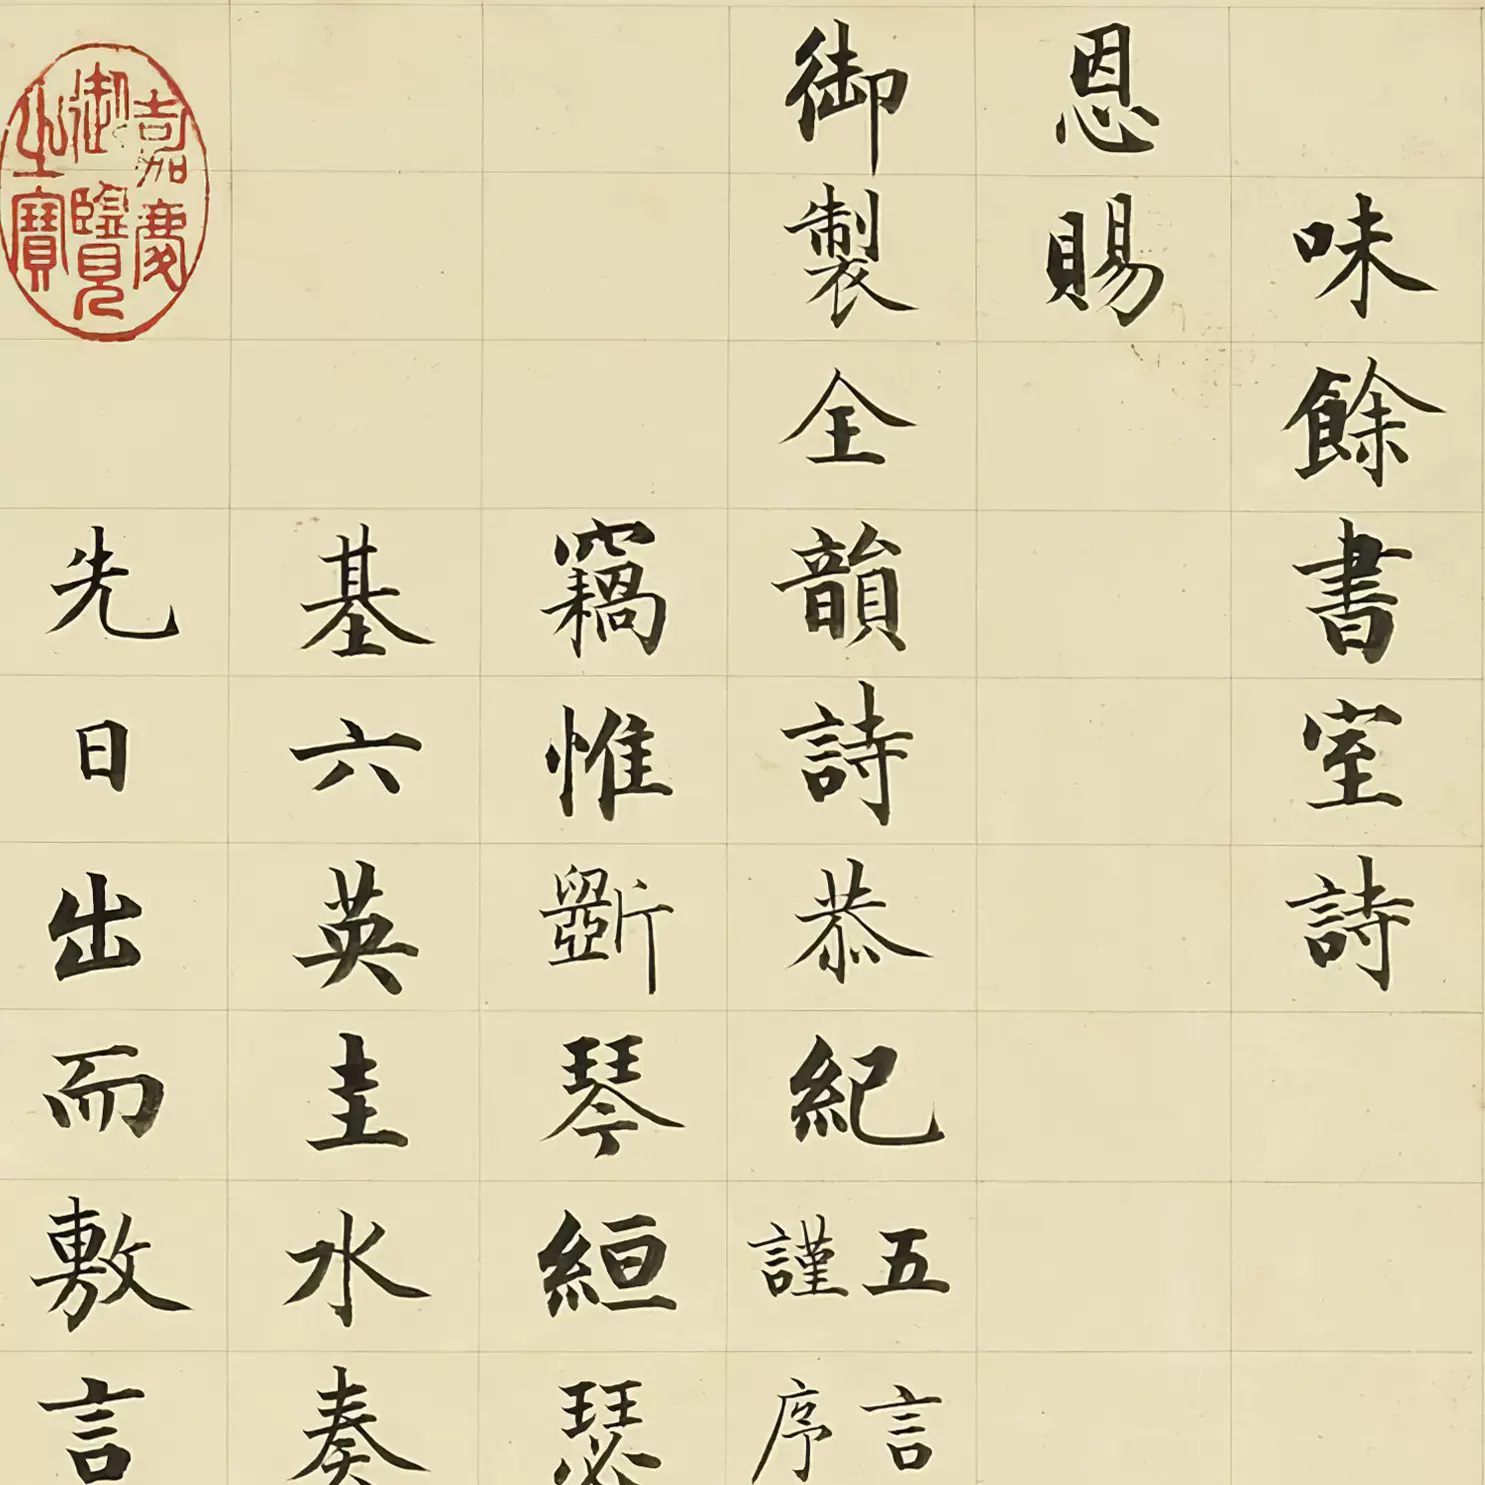 味餘書室詩
恩賜
御製全韻詩恭紀五言
謹序
竊惟斲琴絙瑟
基六英圭水奏
先日出而敷言
嘉慶御覽之寶